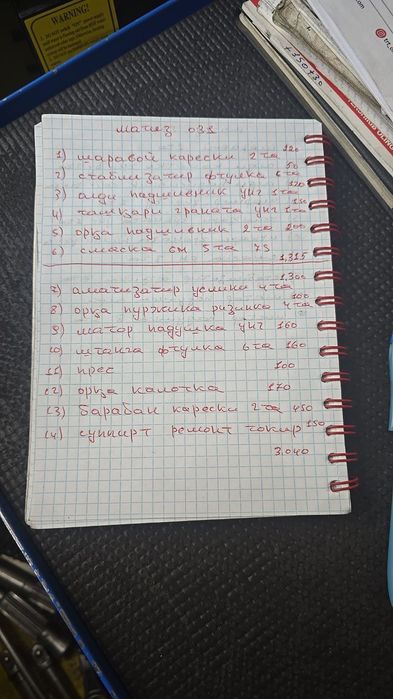 WARNING!
+350+30
матиз 031
1) шаравой карески 2 та 120
2) стаблизатир фтулка 6 та 50
3) алди падшивник унг 1 та 120
4) ташкари граната унг 1 та 150
5) орқа падшивник 2 та 200
6) смаска см 5 та 75
1,315
7) аматизатир услики 4 та 1,300
8) орқа пуржинка ризинка 4 та 100
9) матор падушка унг 160
10) штанга фтулка 6 та 160
11) прес 100
12) орқа калотка 170
13) барабан карески 2 та 450
14) суппирт ремонт токир 150
3.040